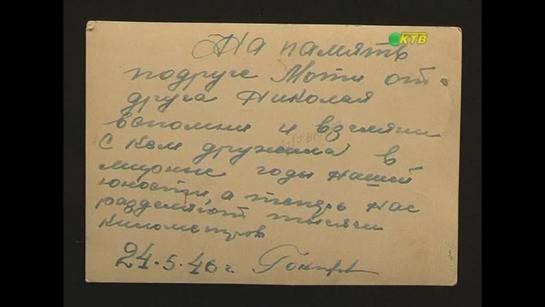 КТВ
На память
подруге Моти от
друга Николая
вспомни и взгляни
с кем дружила в
мирные годы нашей
юности, а теперь нас
разделяют тысячи
километров
24-5-46 г.